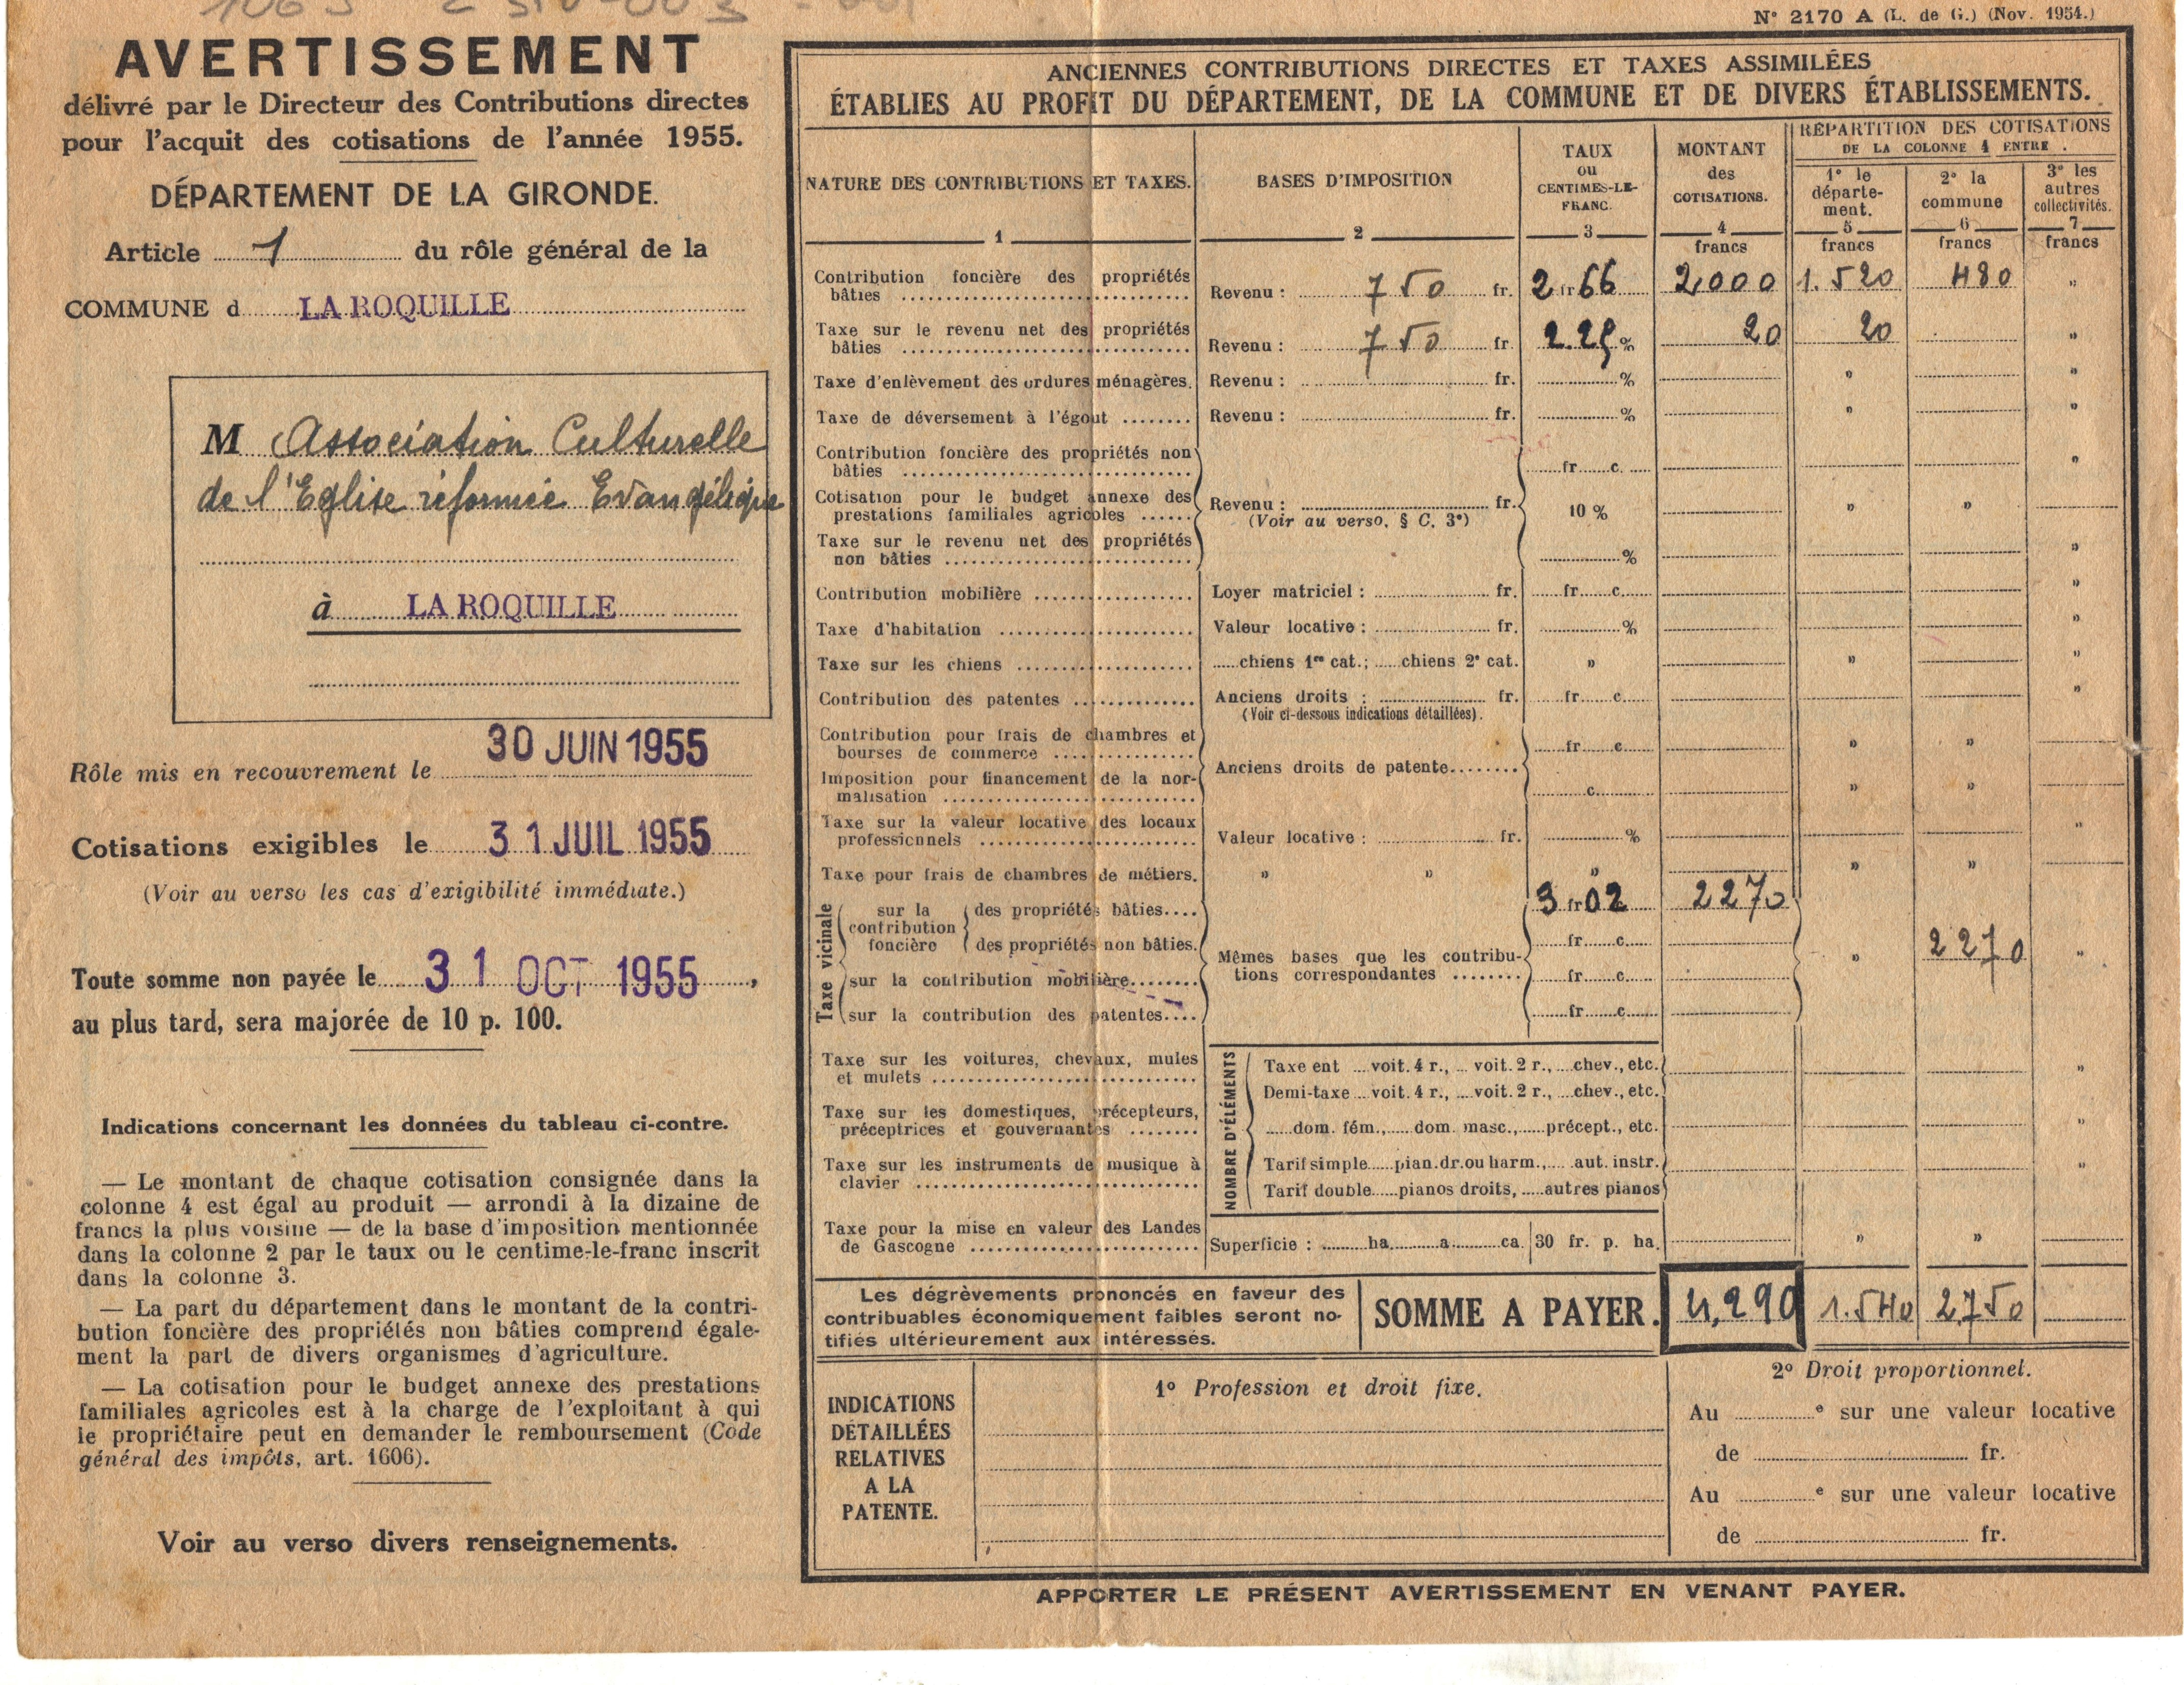 N° 2170 A (L. de G.) (Nov. 1954.)
AVERTISSEMENT
délivré par le Directeur des Contributions directes
pour l'acquit des cotisations de l'année 1955.
DÉPARTEMENT DE LA GIRONDE.
Article 1 du rôle général de la
COMMUNE d LA ROQUILLE
M Association Culturelle
de l'Eglise réformée Evangélique
à LA ROQUILLE
Rôle mis en recouvrement le 30 JUIN 1955
Cotisations exigibles le 31 JUIL 1955
(Voir au verso les cas d'exigibilité immédiate.)
Toute somme non payée le 31 OCT 1955,
au plus tard, sera majorée de 10 p. 100.
Indications concernant les données du tableau ci-contre.
— Le montant de chaque cotisation consignée dans la
colonne 4 est égal au produit — arrondi à la dizaine de
francs la plus voisine — de la base d'imposition mentionnée
dans la colonne 2 par le taux ou le centime-le-franc inscrit
dans la colonne 3.
— La part du département dans le montant de la contri-
bution foncière des propriétés non bâties comprend égale-
ment la part de divers organismes d'agriculture.
— La cotisation pour le budget annexe des prestations
familiales agricoles est à la charge de l'exploitant à qui
le propriétaire peut en demander le remboursement (Code
général des impôts, art. 1606).
Voir au verso divers renseignements.
ANCIENNES CONTRIBUTIONS DIRECTES ET TAXES ASSIMILÉES
ÉTABLIES AU PROFIT DU DÉPARTEMENT, DE LA COMMUNE ET DE DIVERS ÉTABLISSEMENTS.
NATURE DES CONTRIBUTIONS ET TAXES.
1
BASES D'IMPOSITION
2
TAUX
ou
CENTIMES-LE-
FRANC.
3
MONTANT
des
COTISATIONS.
4
francs
RÉPARTITION DES COTISATIONS
DE LA COLONNE 4 ENTRE :
1° le
départe-
ment.
5
francs
2° la
commune
6
francs
3° les
autres
collectivités.
7
francs
Contribution foncière des propriétés
bâties Revenu : 750 fr. 2 fr 66 2,000 1.520 480 "
Taxe sur le revenu net des propriétés
bâties Revenu : 750 fr. 2.25 % 20 20 "
Taxe d'enlèvement des ordures ménagères. Revenu : fr. % " "
Taxe de déversement à l'égout Revenu : fr. % " "
Contribution foncière des propriétés non
bâties fr. c. "
Cotisation pour le budget annexe des
prestations familiales agricoles Revenu : fr. 10 % " "
(Voir au verso, § C, 3°)
Taxe sur le revenu net des propriétés
non bâties % "
Contribution mobilière Loyer matriciel : fr. fr. c. "
Taxe d'habitation Valeur locative : fr. % "
Taxe sur les chiens chiens 1re cat.; chiens 2e cat. " " "
Contribution des patentes Anciens droits : fr. fr. c. "
(Voir ci-dessous indications détaillées).
Contribution pour frais de chambres et
bourses de commerce fr. c. " "
Anciens droits de patente
Imposition pour financement de la nor-
malisation c. " "
Taxe sur la valeur locative des locaux
professionnels Valeur locative : fr. % "
Taxe pour frais de chambres de métiers. " " " " "
Taxe vicinale
sur la
contribution
foncière
des propriétés bâties 3 fr 02 2270
des propriétés non bâties. fr. c. 2270
Mêmes bases que les contribu-
tions correspondantes " "
sur la contribution mobilière fr. c.
sur la contribution des patentes fr. c.
Taxe sur les voitures, chevaux, mules
et mulets
NOMBRE D'ÉLÉMENTS
Taxe ent voit. 4 r., voit. 2 r., chev., etc. "
Demi-taxe voit. 4 r., voit. 2 r., chev., etc.
Taxe sur les domestiques, précepteurs,
préceptrices et gouvernantes dom. fém., dom. masc., précept., etc. "
Taxe sur les instruments de musique à
clavier
Tarif simple pian. dr. ou harm., aut. instr. "
Tarif double pianos droits, autres pianos
Taxe pour la mise en valeur des Landes
de Gascogne Superficie : ha. a. ca. 30 fr. p. ha. " "
Les dégrèvements prononcés en faveur des
contribuables économiquement faibles seront no-
tifiés ultérieurement aux intéressés.
SOMME A PAYER. 4,290 1.540 2750
INDICATIONS
DÉTAILLÉES
RELATIVES
A LA
PATENTE.
1° Profession et droit fixe.
2° Droit proportionnel.
Au e sur une valeur locative
de fr.
Au e sur une valeur locative
de fr.
APPORTER LE PRÉSENT AVERTISSEMENT EN VENANT PAYER.